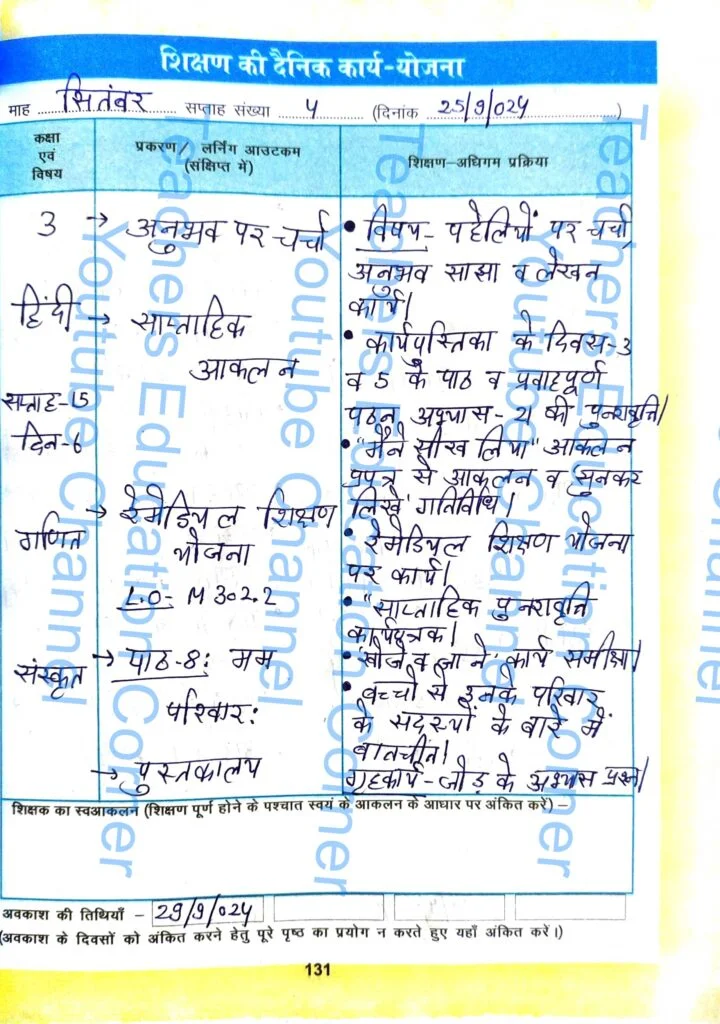 शिक्षण की दैनिक कार्य-योजना
माह सितंबर सप्ताह संख्या 4 (दिनांक 25/9/024)
कक्षा एवं विषय
प्रकरण/ लर्निंग आउटकम (संक्षिप्त में)
शिक्षण-अधिगम प्रक्रिया
3
हिंदी
सप्ताह-15
दिन-6
गणित
संस्कृत
→ अनुभव पर चर्चा
→ साप्ताहिक
आकलन
→ रेमेडियल शिक्षण
योजना
L.O- M 302.2
→ पाठ-8: मम
परिवार:
→ पुस्तकालय
• विषय- पहेलियों पर चर्चा,
अनुभव साझा व लेखन
कार्य।
• कार्यपुस्तिका के दिवस-3
व 5 के पाठ व प्रवाहपूर्ण
पठन अभ्यास-21 की पुनरावृत्ति।
• "मैंने सीख लिया" आकलन
प्रपत्र से आकलन व सुनकर
लिखें' गतिविधि।
• रेमेडियल शिक्षण योजना
पर कार्य।
• "साप्ताहिक पुनरावृत्ति
कार्यपत्रक।
• 'खोजें व जाने' कार्य समीक्षा।
• बच्चों से उनके परिवार
के सदस्यों के बारे में
बातचीत।
गृहकार्य- जोड़ के अभ्यास प्रश्न।
शिक्षक का स्वआकलन (शिक्षण पूर्ण होने के पश्चात स्वयं के आकलन के आधार पर अंकित करें) –
अवकाश की तिथियाँ – 29/9/024
(अवकाश के दिवसों को अंकित करने हेतु पूरे पृष्ठ का प्रयोग न करते हुए यहाँ अंकित करें।)
131
Teachers Education Corner
Youtube Channel
Teachers Education Corner
Youtube Channel
Teachers Education Corner
Youtube Channel